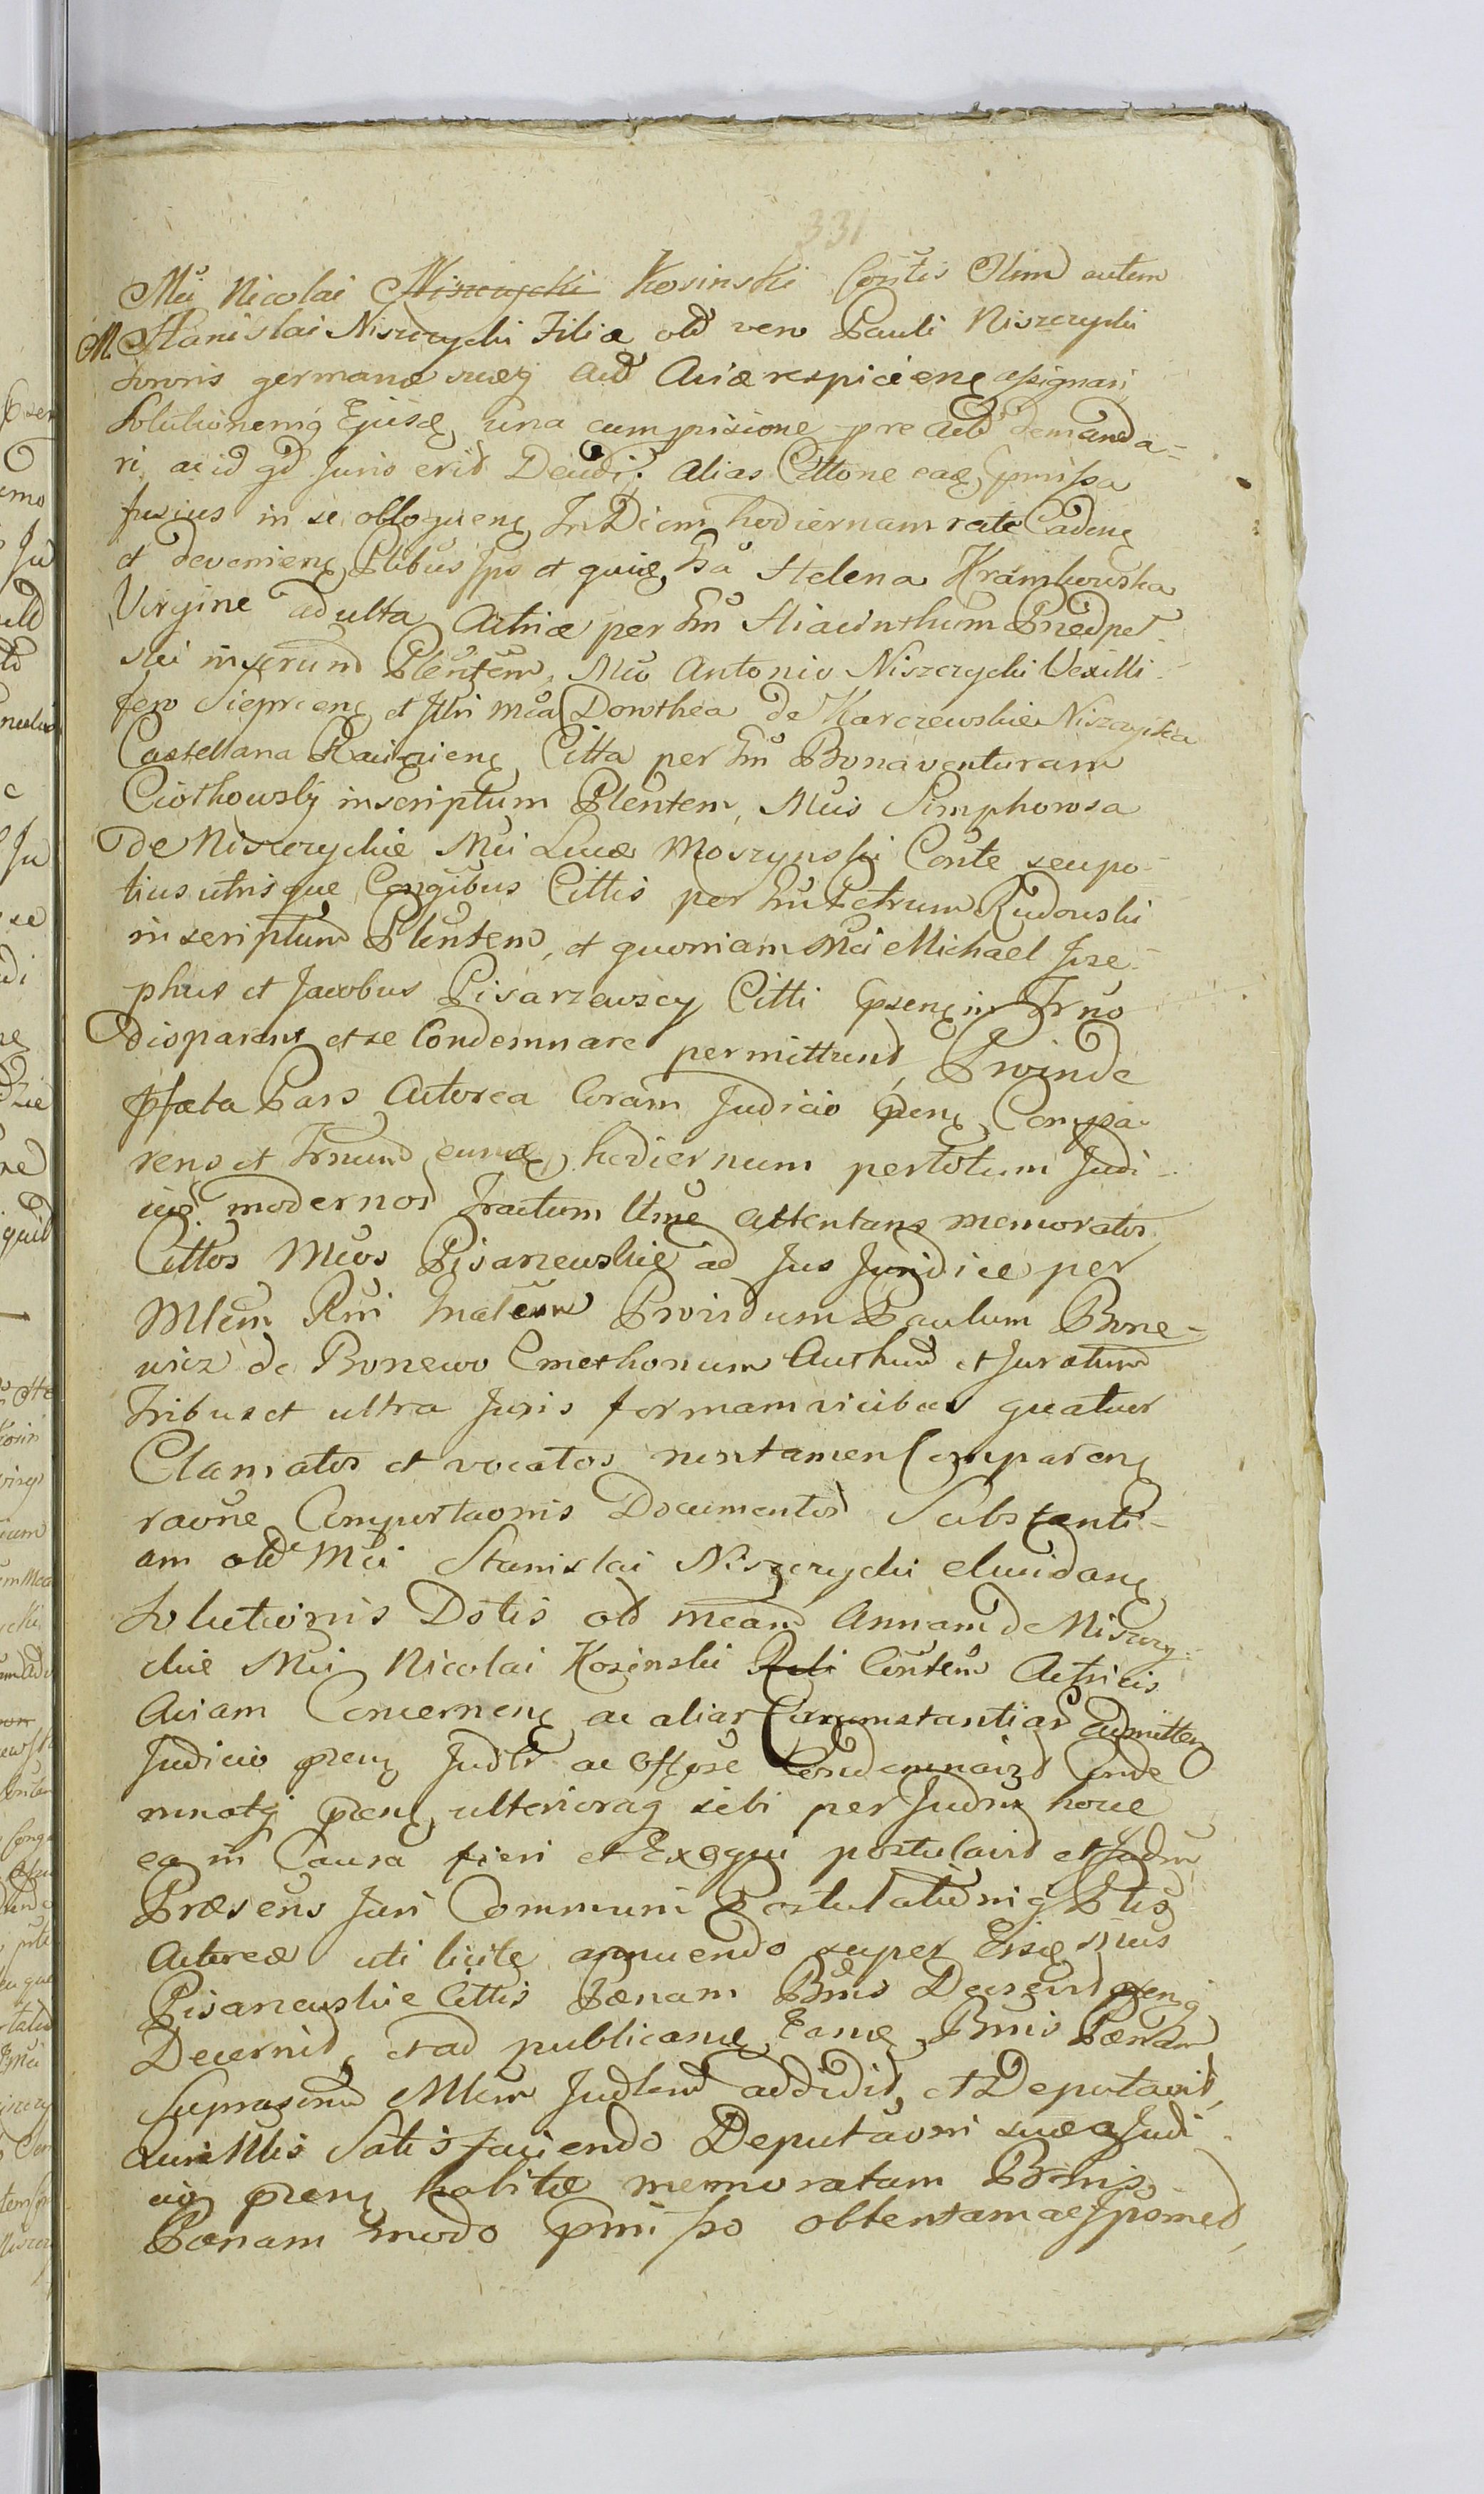 331
Mci Nicolai Niszczycki Kosinski Contis Olim autem
M. Stanislai Niszczycki Filiæ olim vero Pauli Niszczycki
Sororis germanæ suæq Actri Aviæ respiciens assignari
Solutionemq Ejusd una cum prisione pre Actri demanda-
ri, ac id qd Juris erit Decidi; alias Cittone ead pmissa
fusius in se obloquens In Diem hodiernam rite Cadens
et deveniens Ptibus Ipis et quid Gsa Helena Krámkowska
Virgine adulta Actrice per Gsm Hiacinthum Przedpel-
ski inscriptum Plentem, Mco Antonio Niszczycki Vexilli-
fero Sieprcens et Illri Mca Dorothea de Karczewskie Niszczycka
Castellana Raciąziens Citta per Gsm Bonaventuram
Ciotkowskij inscriptum Plentem, Mcis Simphorosa
de Niszczyckie Mci Lucæ Moszynski Conte seu po-
tius utrisque Congibus Cittis per Gsm Petrum Rudowski
inscriptum Plentem, et quoniam Mci Michael Jose-
phus et Jacobus Pisarzewscy Citti psens in Trno
disparent et se Condemnare permittunt, Proinde
pfata Pars Actorea Coram Judicio pns Compa-
rens et Trnum eund hodiernum pertotum Judi-
cioq modernor Tractum Ume attentans memoratos
Cittos Mcos Pisarzewskie ad Jus Juridice per
Mlem Rni Gnalem Providum Paulum Bone-
wicz de Bonewo Cmethonum Authum et Juratum
Tribus et ultra Juris formam vicibus quatuor
Clamatos et vocatos non tamen Comparens
raone Comportaonis Documentor Substanti-
am olim Mci Stanislai Niszczycki elucidans
Solutionis Dotis olim Mcam Annam de Niszczy-
ckie Mci Nicolai Kosinski Conten Actricis
Aviam Concernens ac alias Circumstantias admitten
Judicio pns Judlr ac Offose Condemnavit Conde
mnatq pns, ulterioraq sibi per Judm hocce
ea in Causa fieri et Exequi postulavit et Judm
Præsens Juri Communi Postulationiq Ptis
Actoreæ uti licite annuendo super Eisd Mcis
Pisarzewskie Cittis Pœnam Bnis Decrevit psensq
Decernit, et ad publicand Eand Bnis Pœnam
suprascrim Mlem Judlem addidit, et Deputavit,
Qui Mlis Satisfaciendo Deputaoni suæ a Judi-
cio pns habitæ memoratam Bnis
Pœnam modo pmisso obtentam ac Ipsmet,